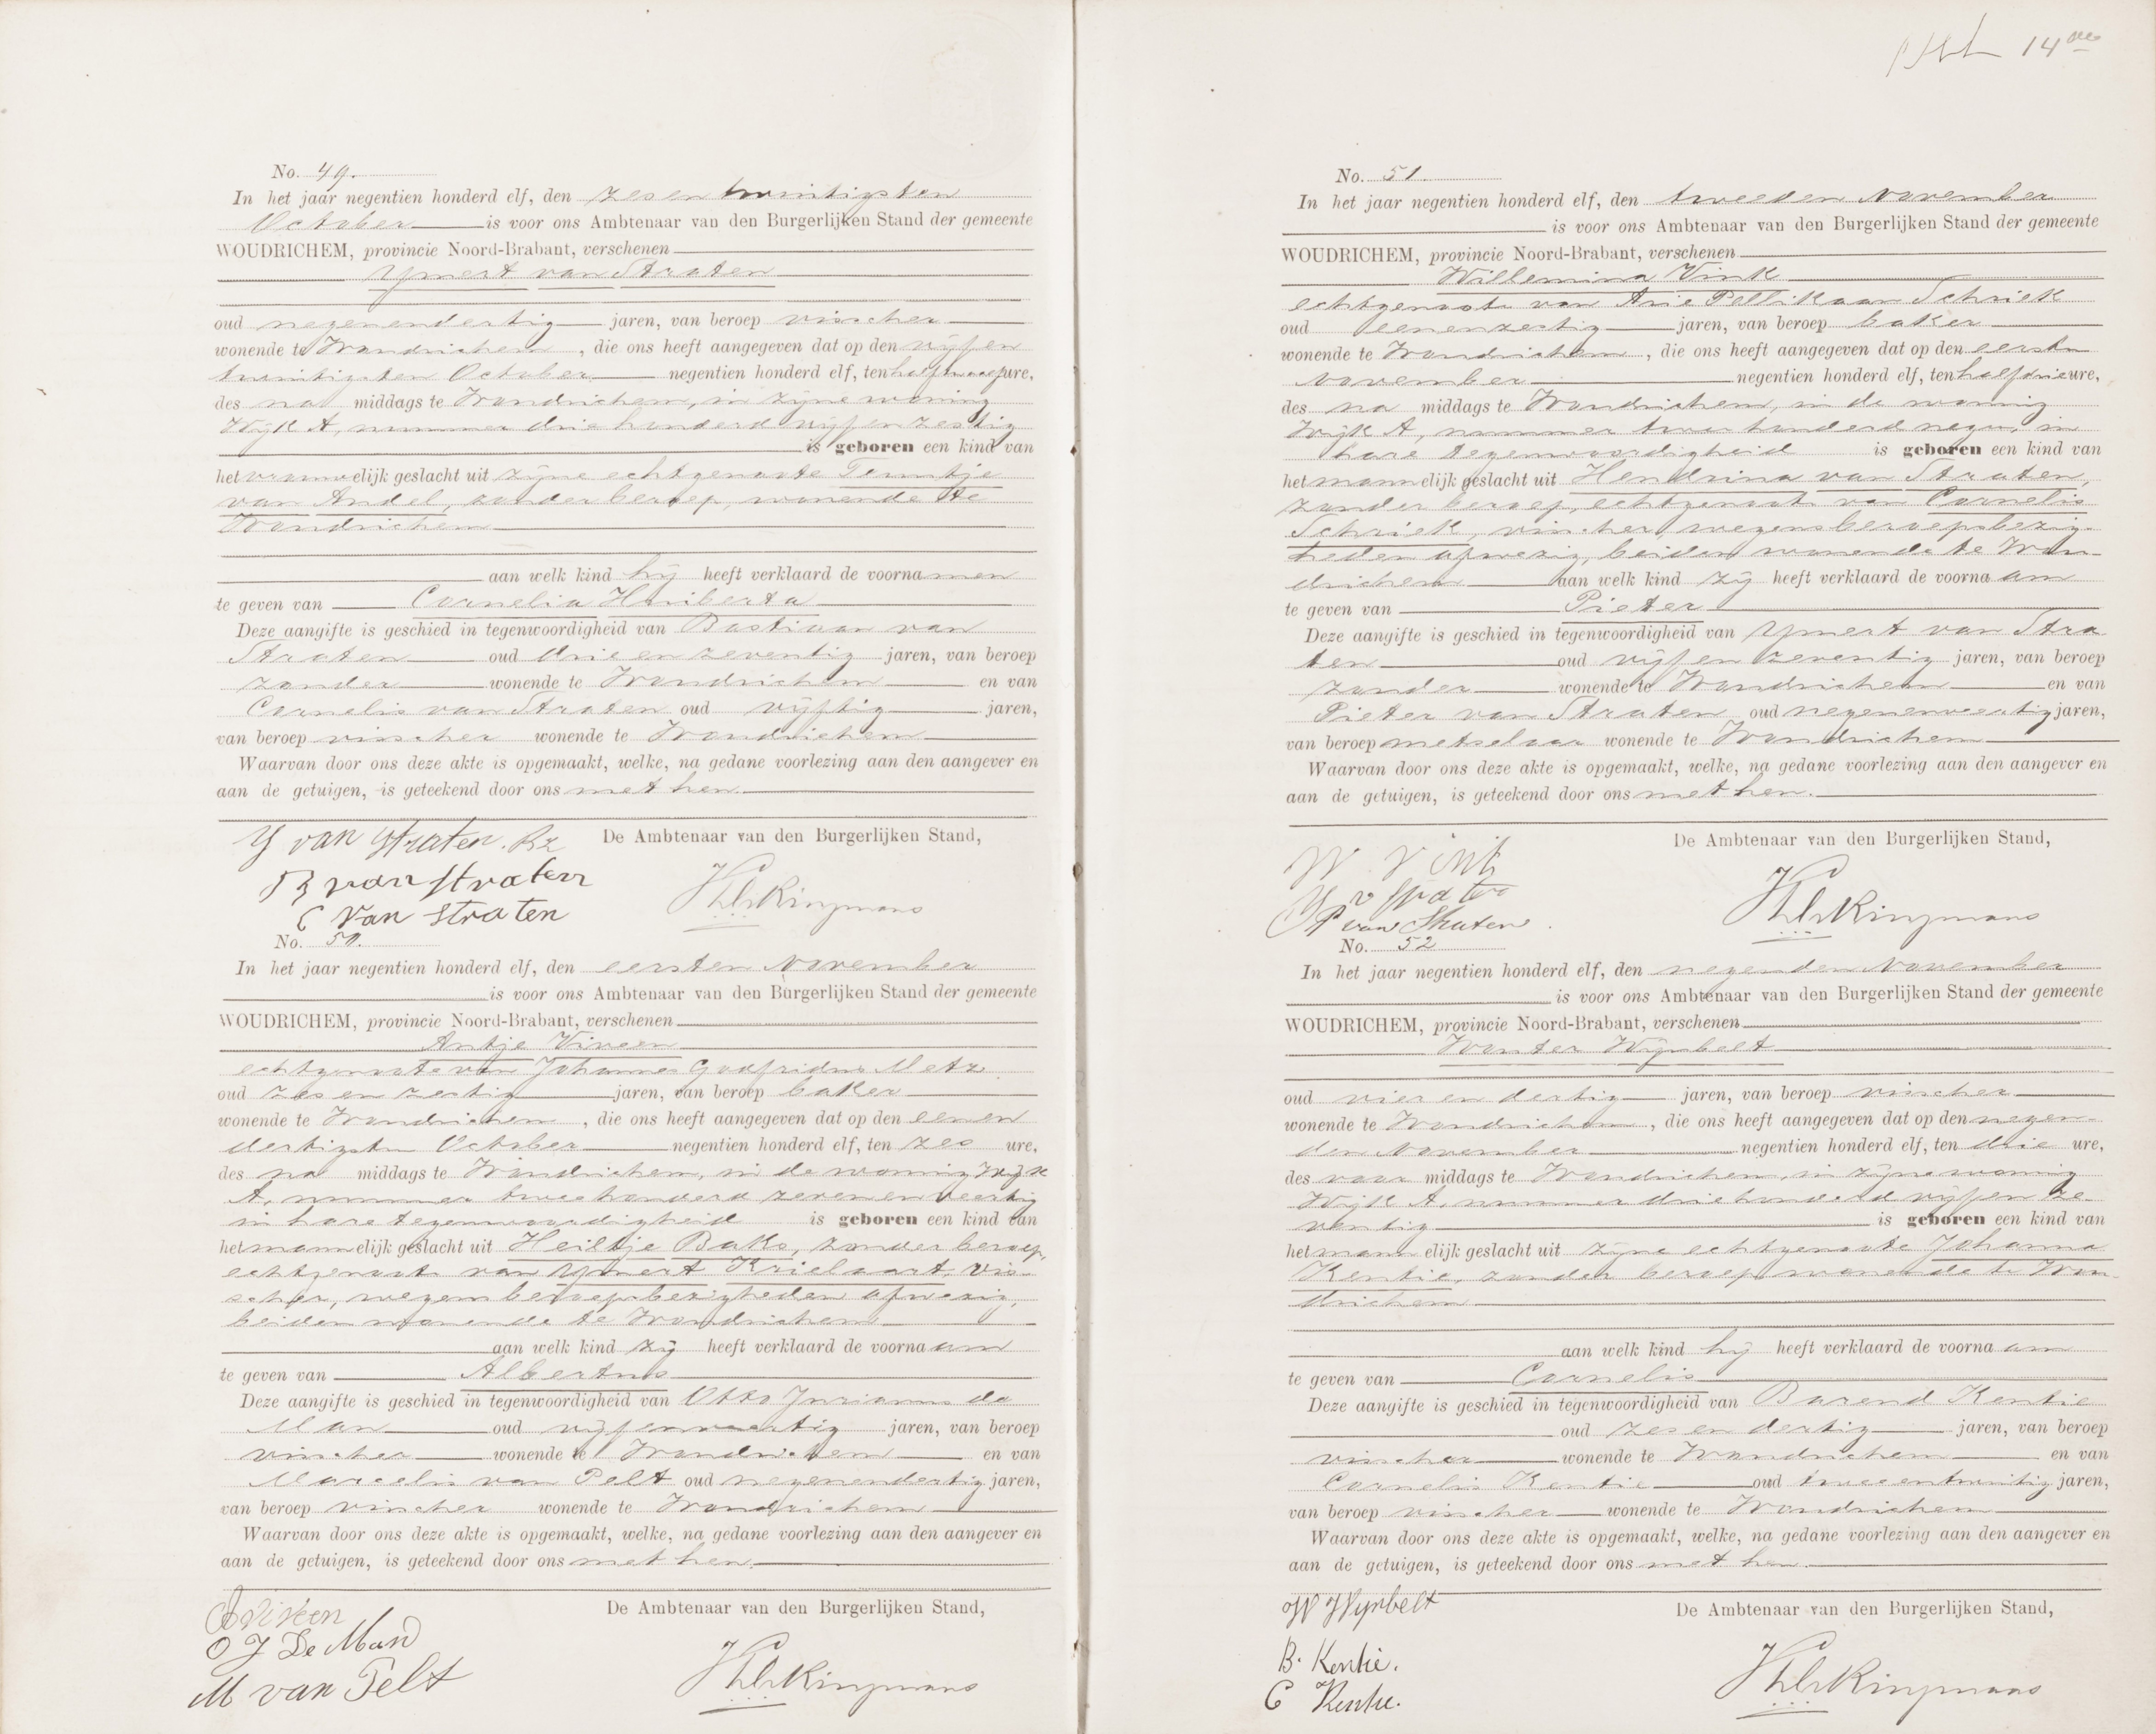 No. 49.
In het jaar negentien honderd elf, den zesentwintigsten
October is voor ons Ambtenaar van den Burgerlijken Stand der gemeente
WOUDRICHEM, provincie Noord-Brabant, verschenen
Ymert van Straten
oud negenendertig jaren, van beroep visscher
wonende te Woudrichem, die ons heeft aangegeven dat op den vijfen
twintigsten October negentien honderd elf, ten half twee ure,
des na middags te Woudrichem, in zijne woning
Wijk A, nummer driehonderd vijfenzestig
is geboren een kind van
het vrouwelijk geslacht uit zijne echtgenoote Teuntje
van Andel, zonder beroep, wonende te
Woudrichem
aan welk kind hij heeft verklaard de voornamen
te geven van Cornelia Huiberta
Deze aangifte is geschied in tegenwoordigheid van Bastiaan van
Straten oud drieenzeventig jaren, van beroep
zonder wonende te Woudrichem en van
Cornelis van Straten oud vijftig jaren,
van beroep visscher wonende te Woudrichem
Waarvan door ons deze akte is opgemaakt, welke, na gedane voorlezing aan den aangever en
aan de getuigen, is geteekend door ons met hen.
De Ambtenaar van den Burgerlijken Stand,
Y van Straten. Bz
B van Straten
C van Straten
No. 50.
In het jaar negentien honderd elf, den eersten November
is voor ons Ambtenaar van den Burgerlijken Stand der gemeente
WOUDRICHEM, provincie Noord-Brabant, verschenen
Antje Viveen
echtgenoote van Johannes Godfridus Metz
oud zesenzestig jaren, van beroep baker
wonende te Woudrichem, die ons heeft aangegeven dat op den eenen
dertigsten October negentien honderd elf, ten zes ure,
des na middags te Woudrichem, in de woning Wijk
A, nummer tweehonderd zevenenveertig
in hare tegenwoordigheid is geboren een kind van
het mannelijk geslacht uit Heiltje Bako, zonder beroep,
echtgenoote van Ymert Krielaart, vis-
scher, wegens beroepsbezigheden afwezig,
beiden wonende te Woudrichem
aan welk kind zij heeft verklaard de voornaam
te geven van Albertus
Deze aangifte is geschied in tegenwoordigheid van Otto Jurianus de
Man oud vijfenveertig jaren, van beroep
visscher wonende te Woudrichem en van
Marcelis van Pelt oud negenendertig jaren,
van beroep visscher wonende te Woudrichem
Waarvan door ons deze akte is opgemaakt, welke, na gedane voorlezing aan den aangever en
aan de getuigen, is geteekend door ons met hen.
De Ambtenaar van den Burgerlijken Stand,
A Viveen
O J De Man
M van Pelt
14de
No. 51.
In het jaar negentien honderd elf, den tweeden November
is voor ons Ambtenaar van den Burgerlijken Stand der gemeente
WOUDRICHEM, provincie Noord-Brabant, verschenen
Willemina Vink
echtgenoote van Arie Pellikaan Schriek
oud eenenzestig jaren, van beroep baker
wonende te Woudrichem, die ons heeft aangegeven dat op den eersten
November negentien honderd elf, ten half drie ure,
des na middags te Woudrichem, in de woning
Wijk A, nummer tweehonderd negen, in
hare tegenwoordigheid is geboren een kind van
het mannelijk geslacht uit Hendrina van Straten,
zonder beroep, echtgenoote van Cornelis
Schriek, visscher, wegens beroepsbezig-
heden afwezig, beiden wonende te Wou-
drichem aan welk kind zij heeft verklaard de voornaam
te geven van Pieter
Deze aangifte is geschied in tegenwoordigheid van Ymert van Stra
ten oud vijfenzeventig jaren, van beroep
zonder wonende te Woudrichem en van
Pieter van Straten oud negenenveertig jaren,
van beroep metselaar wonende te Woudrichem
Waarvan door ons deze akte is opgemaakt, welke, na gedane voorlezing aan den aangever en
aan de getuigen, is geteekend door ons met hen.
De Ambtenaar van den Burgerlijken Stand,
W. Vink
Y v Straten
P van Straten
No. 52
In het jaar negentien honderd elf, den negenden November
is voor ons Ambtenaar van den Burgerlijken Stand der gemeente
WOUDRICHEM, provincie Noord-Brabant, verschenen
Wouter Wijnbelt
oud vierendertig jaren, van beroep visscher
wonende te Woudrichem, die ons heeft aangegeven dat op den negen-
den November negentien honderd elf, ten drie ure,
des voor middags te Woudrichem, in zijne woning
Wijk A, nummer driehonderd vijfenze-
ventig is geboren een kind van
het mannelijk geslacht uit zijne echtgenoote Johanna
Kentie, zonder beroep wonende te Wou-
drichem
aan welk kind hij heeft verklaard de voornaam
te geven van Cornelis
Deze aangifte is geschied in tegenwoordigheid van Barend Kentie
oud zesendertig jaren, van beroep
visscher wonende te Woudrichem en van
Cornelis Kentie oud tweeentwintig jaren,
van beroep visscher wonende te Woudrichem
Waarvan door ons deze akte is opgemaakt, welke, na gedane voorlezing aan den aangever en
aan de getuigen, is geteekend door ons met hen.
De Ambtenaar van den Burgerlijken Stand,
W Wynbelt
B. Kentie.
C Kentie.